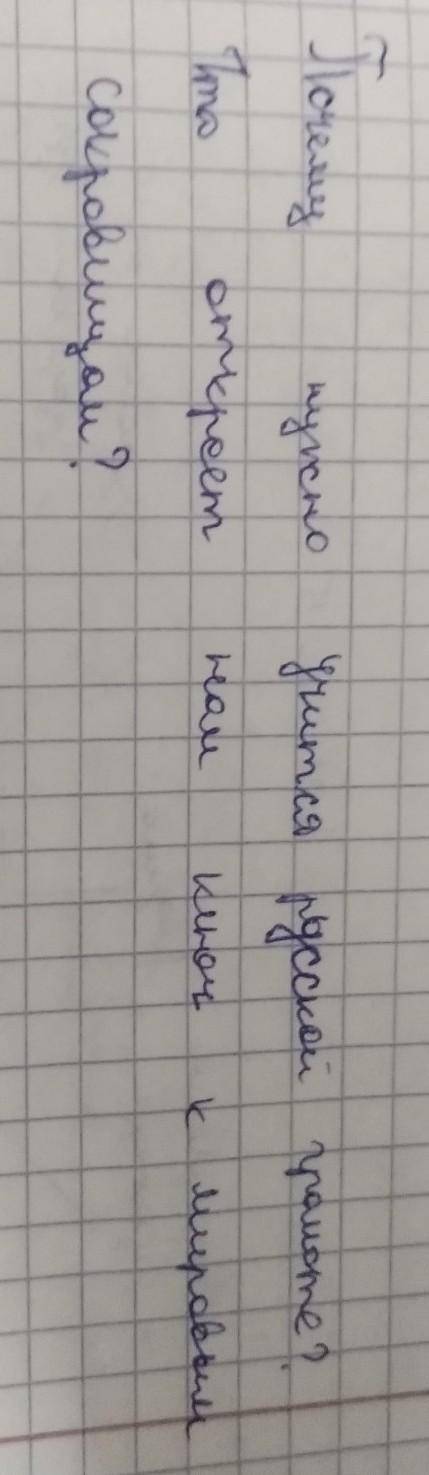 Почему нужно учится русской грамоте?
Что откроет нам ключ к мировым
сокровищам?